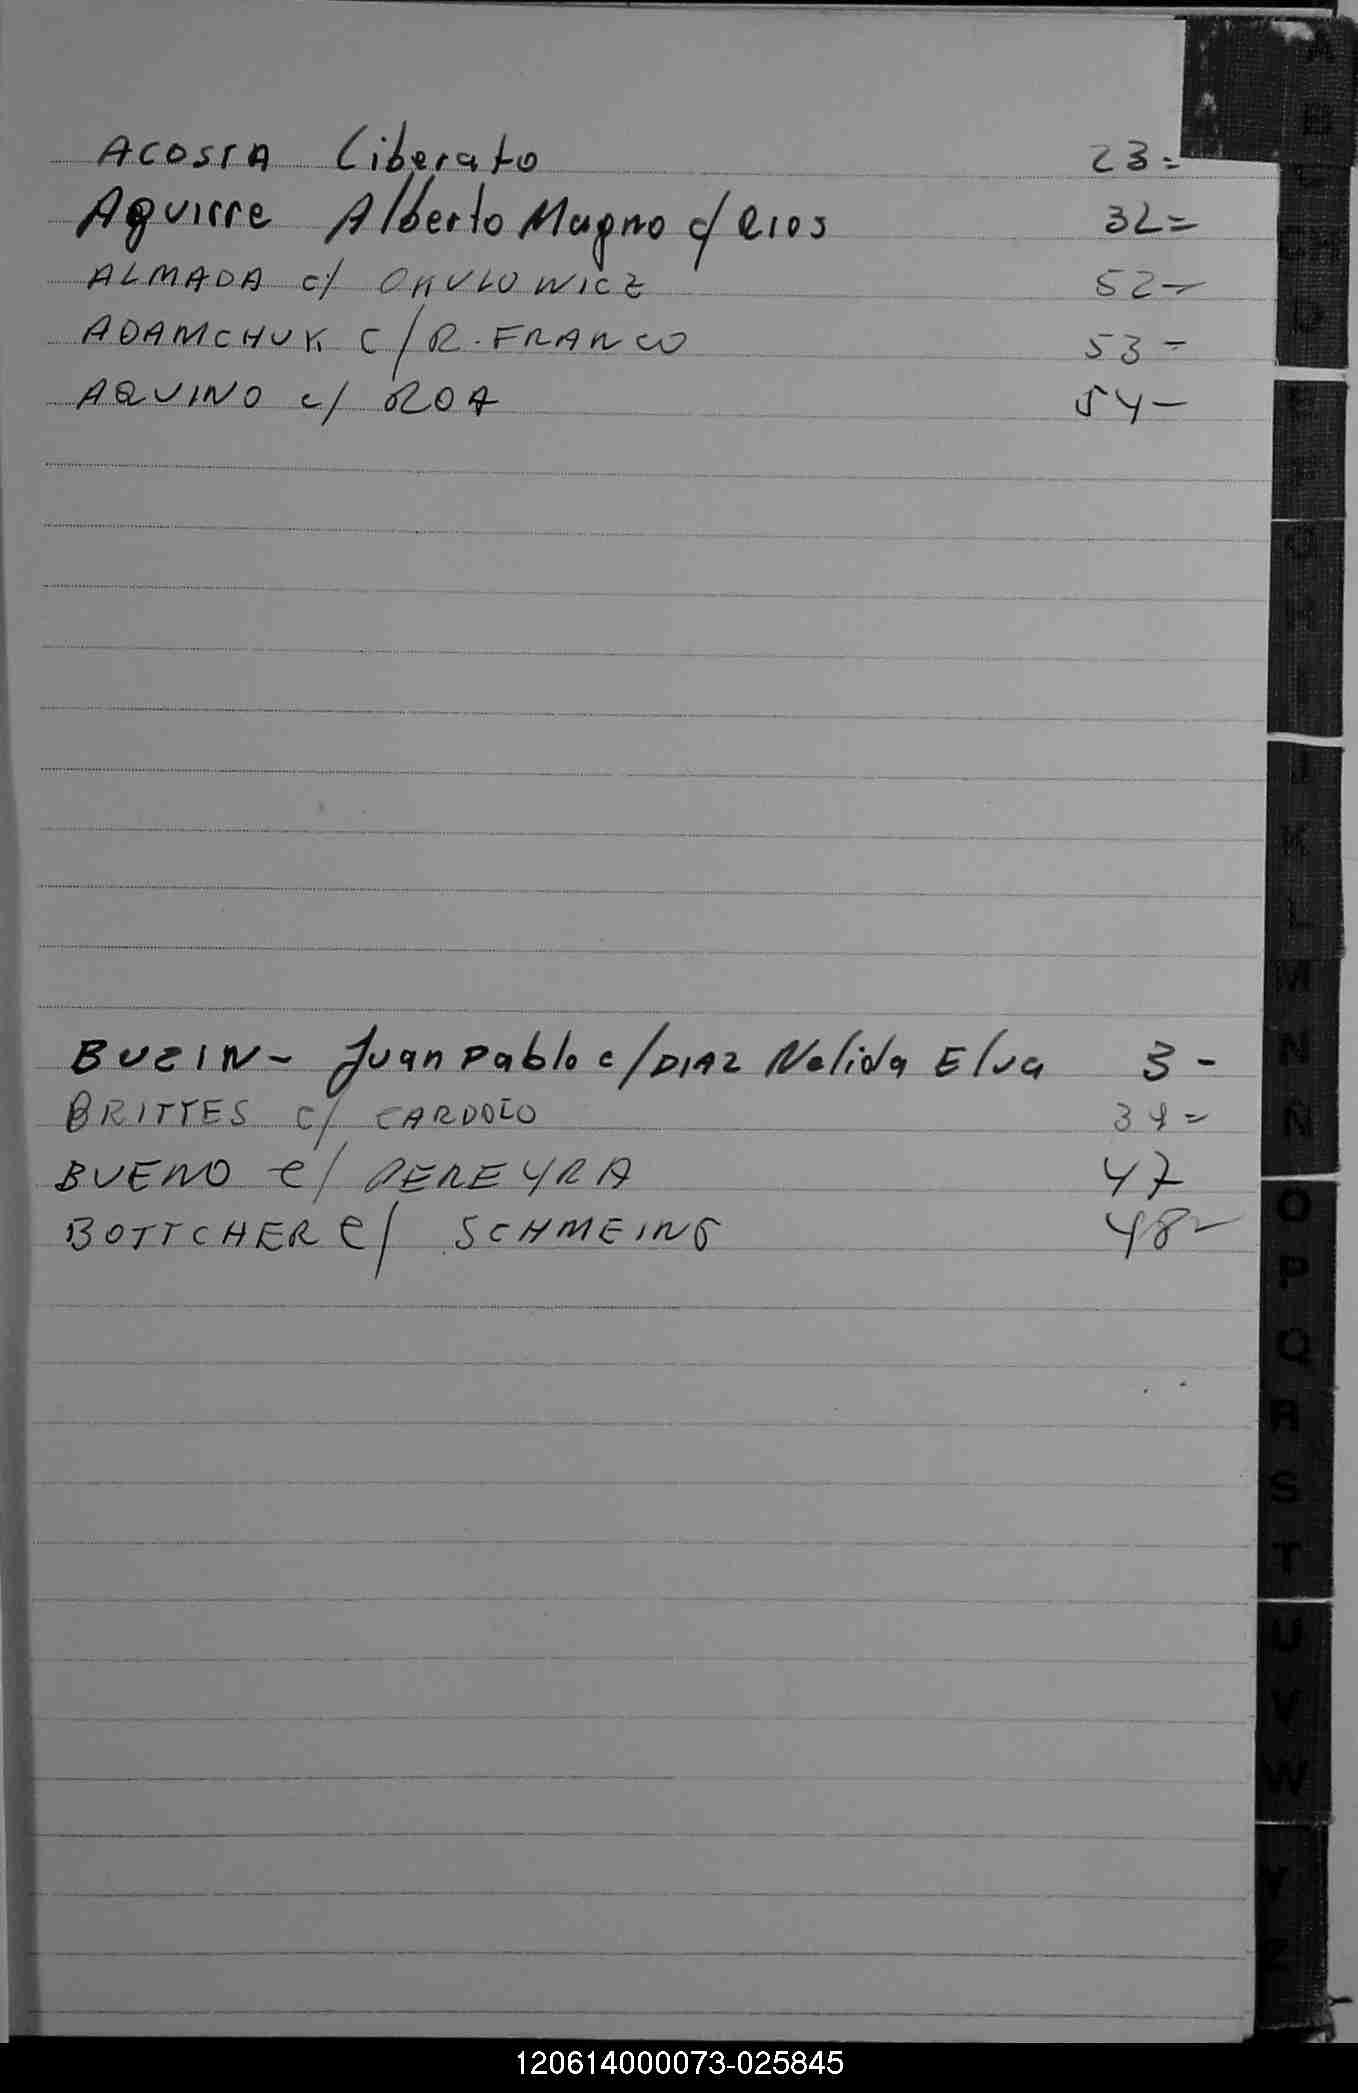 ACOSTA Liberato 23=
Aguirre Alberto Magno c/ Rios 32=
ALMADA c/ OKULOWICZ 52-
ADAMCHUK C/ R. FRANCO 53-
AQUINO c/ ROA 54-
BUZIN- Juan Pablo c/ DIAZ Nelida Elva 3-
BRITTES c/ CARDOZO 39=
BUENO c/ PEREYRA 47
BOTTCHER c/ SCHMEING 48-
A
B
D
K
L
M
N
Ñ
O
P
Q
R
S
T
U
V
W
Y
Z
120614000073-025845